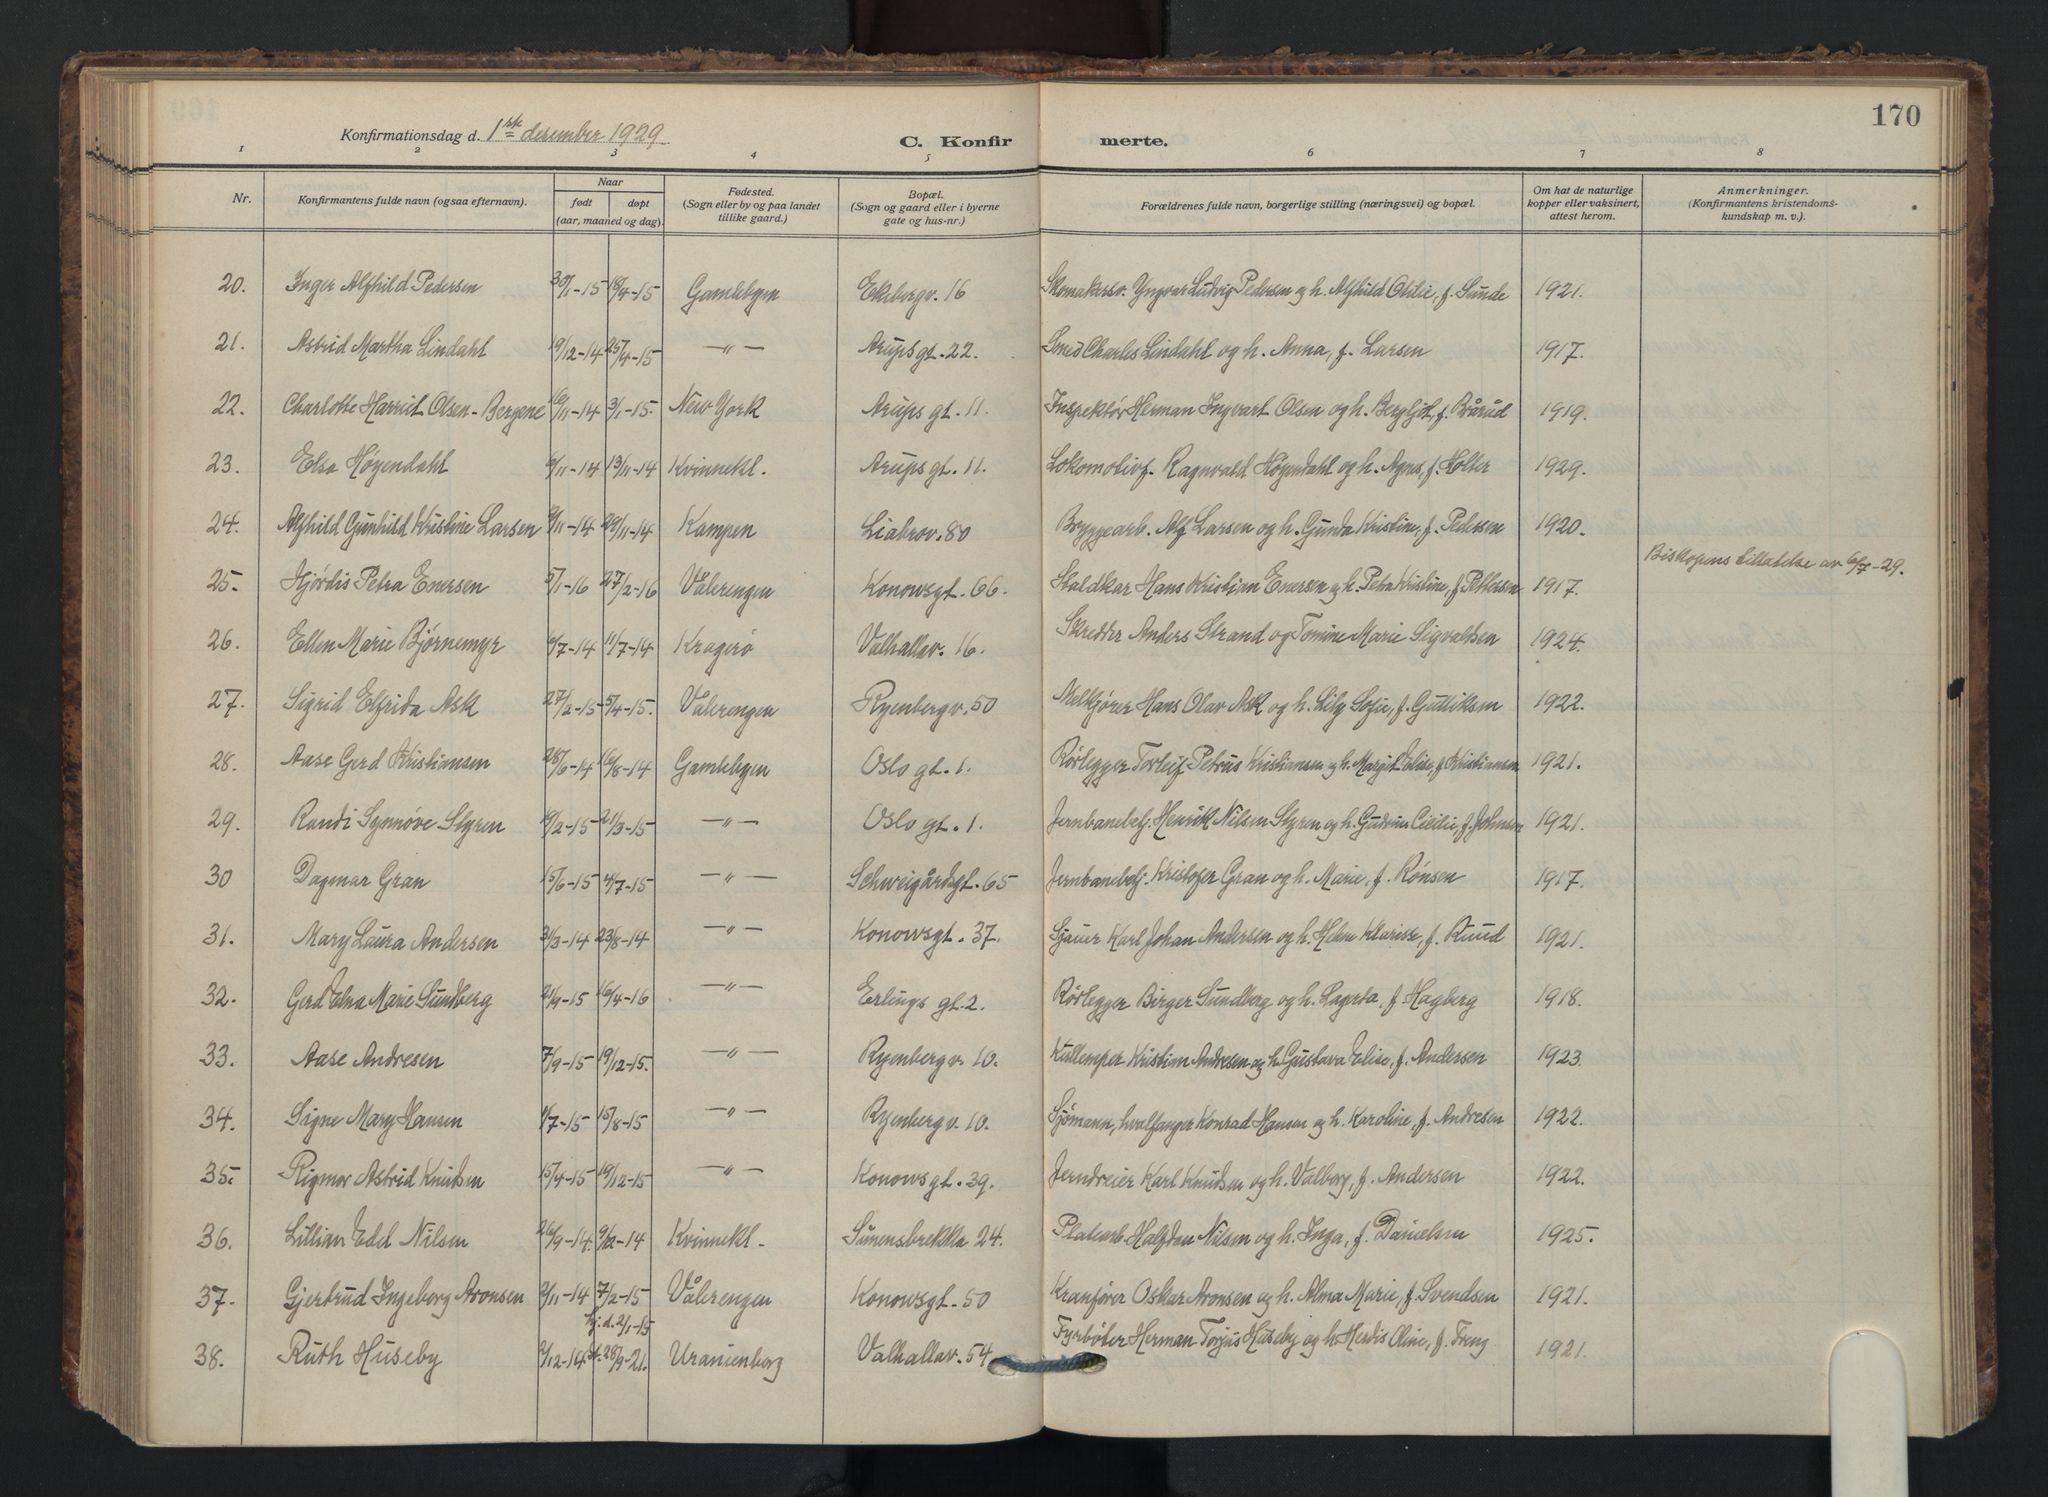 170
Konfirmationsdag d. 1ste desember 1929.
C. Konfirmerte.
1 2 3 4 5 6 7 8
Nr. Konfirmantens fulde navn (ogsaa efternavn). Naar født døpt (aar, maaned og dag). Fødested. (Sogn eller by og paa landet tillike gaard.) Bopæl. (Sogn og gaard eller i byerne gate og hus-nr.) Forældrenes fulde navn, borgerlige stilling (næringsvei) og bopæl. Om hat de naturlige kopper eller vaksinert, attest herom. Anmerkninger. (Konfirmantens kristendomskundskap m. v.)
20. Inger Alfhild Pedersen 30/1-15 18/4-15 Gamlebyen Ekebergv. 16 Skomakersv. Yngvar Ludvig Pedersen og h. Alfhild Otilie, f. Sunde 1921.
21. Astrid Martha Lindahl 19/12-14 25/4-15 —"— Arupsgt. 22. Smed Charles Lindahl og h. Anna, f. Larsen 1917.
22. Charlotte Harriet Olsen-Bergene 16/11-14 3/1-15. New York Arups gt. 11. Inspektør Herman Ingvart Olsen og h. Bergljot, f. Brårud 1919.
23. Elsa Høyendahl 6/11-14 13/11-14 Kvinnekl. Arups gt. 11. Lokomotivf. Ragnvald Høyendahl og h. Agnes, f. Holter 1929.
24. Alfhild Gunhild Kristine Larsen 9/11-14 29/11-14 Kampen Liabrov. 80 Bryggearb. Alf Larsen og h. Gunda Kristine, f. Pedersen 1920.
25. Hjördis Petra Enersen 5/1-16 27/2-16 Vålerengen Konowsgt. 66. Staldkar Hans Kristian Enersen og h. Petra Kristine, f. Pettersen 1917. Biskopens tillatelse av 6/7-29.
26. Ellen Marie Bjørnemyr 6/7-14 11/7-14 Kragerø Valhallav. 16. Skredder Anders Strand og Tomine Marie Sigvaldsen 1924.
27. Sigrid Elfrida Ask 27/2-15 5/4-15. Vålerengen Ryenbergv. 50 Melkjører Hans Olav Ask og h. Lily Sofie, f. Gulliksen 1922.
28. Aase Gerd Kristiansen 28/6-14 16/8-14 Gamlebyen Oslo gt. 1. Rørlegger Torleif Petrus Kristiansen og h. Margit Elise, f. Kristiansen 1921.
29. Randi Synnøve Styren 19/2-15 21/3-15 —"— Oslo gt. 1. Jernbanebetj. Henrik Nilsen Styren og h. Gudrun Cecilie, f. Johnsen 1921.
30 Dagmar Gran 15/6-15 4/7-15 —"— Schweigårdsgt. 65 Jernbanebetj. Kristofer Gran og h. Marie, f. Rønsen 1917.
31. Mary Laura Andersen 31/3-14 23/8-14 —"— Konowsgt. 37. Sjauer Karl Johan Andersen og h. Helene Klarise, f. Ruud 1921.
32. Gerd Edna Marie Sundberg 21/9-15 16/4-16 —"— Erlings gt. 2. Rørlegger Birger Sundberg og h. Lagerta, f. Hagberg 1918.
33. Aase Andresen 7/9-15 19/12-15. —"— Ryenbergv. 10. Kullemper Kristian Andresen og h. Gustava Elise, f. Andersen 1923.
34. Signe Mary Hansen 1/7-15 15/8-15 —"— Ryenbergv. 10. Sjømann, hvalfanger Konrad Hansen og h. Karoline, f. Andresen 1922.
35. Rigmor Astrid Knudsen 15/4-15 19/12-15 —"— Konowsgt. 39. Jerndreier Karl Knudsen og h. Valborg, f. Andersen 1922.
36. Lillian Edel Nilsen 26/9-14. 9/12-14 Kvinnekl. Simensbrekka 24. Platearb. Halfdan Nilsen og h. Inga, f. Danielsen 1925.
37. Gjertrud Ingeborg Aronsen 2/11-14 7/2-15 Vålerengen Konowsgt. 50 Kranfører Oskar Aronsen og h. Alma Marie, f. Svendsen 1921.
38. Ruth Huseby 2/12-14 hj. d. 2/1-15 st. 28/9-21. Uranienborg Valhallav. 54 Fyrbøter Herman Torjus Huseby og h. Herdis Oline, f. Freng 1921.